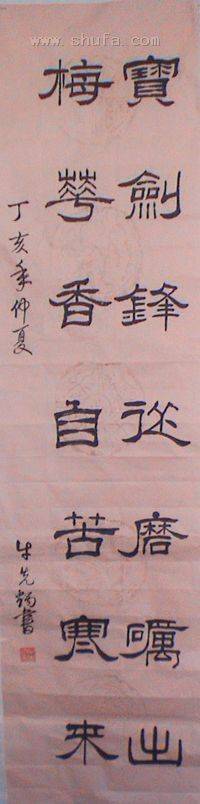 寶劍鋒從磨礪出
梅花香自苦寒來
丁亥年仲夏
www.shufa.com